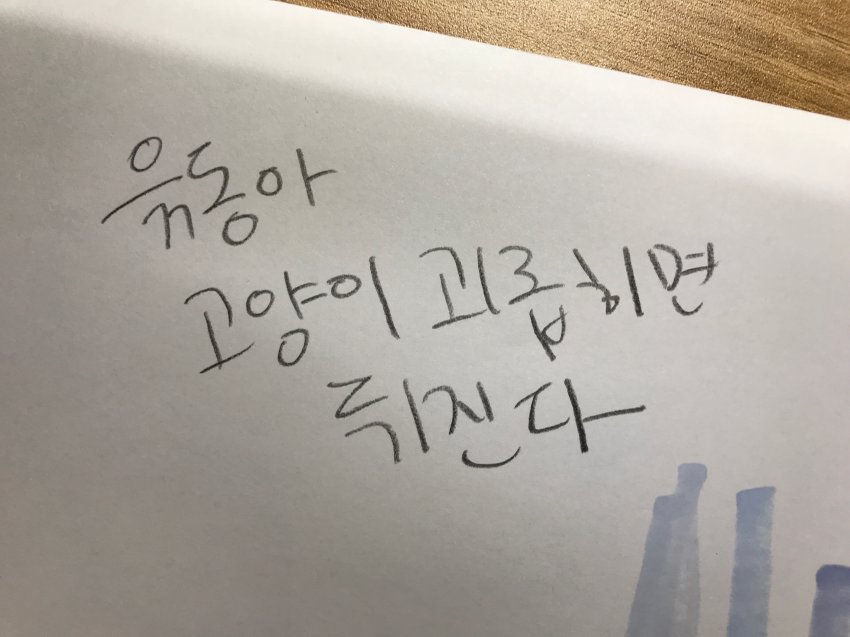 윶동아
고양이 괴롭히면
뒤진다